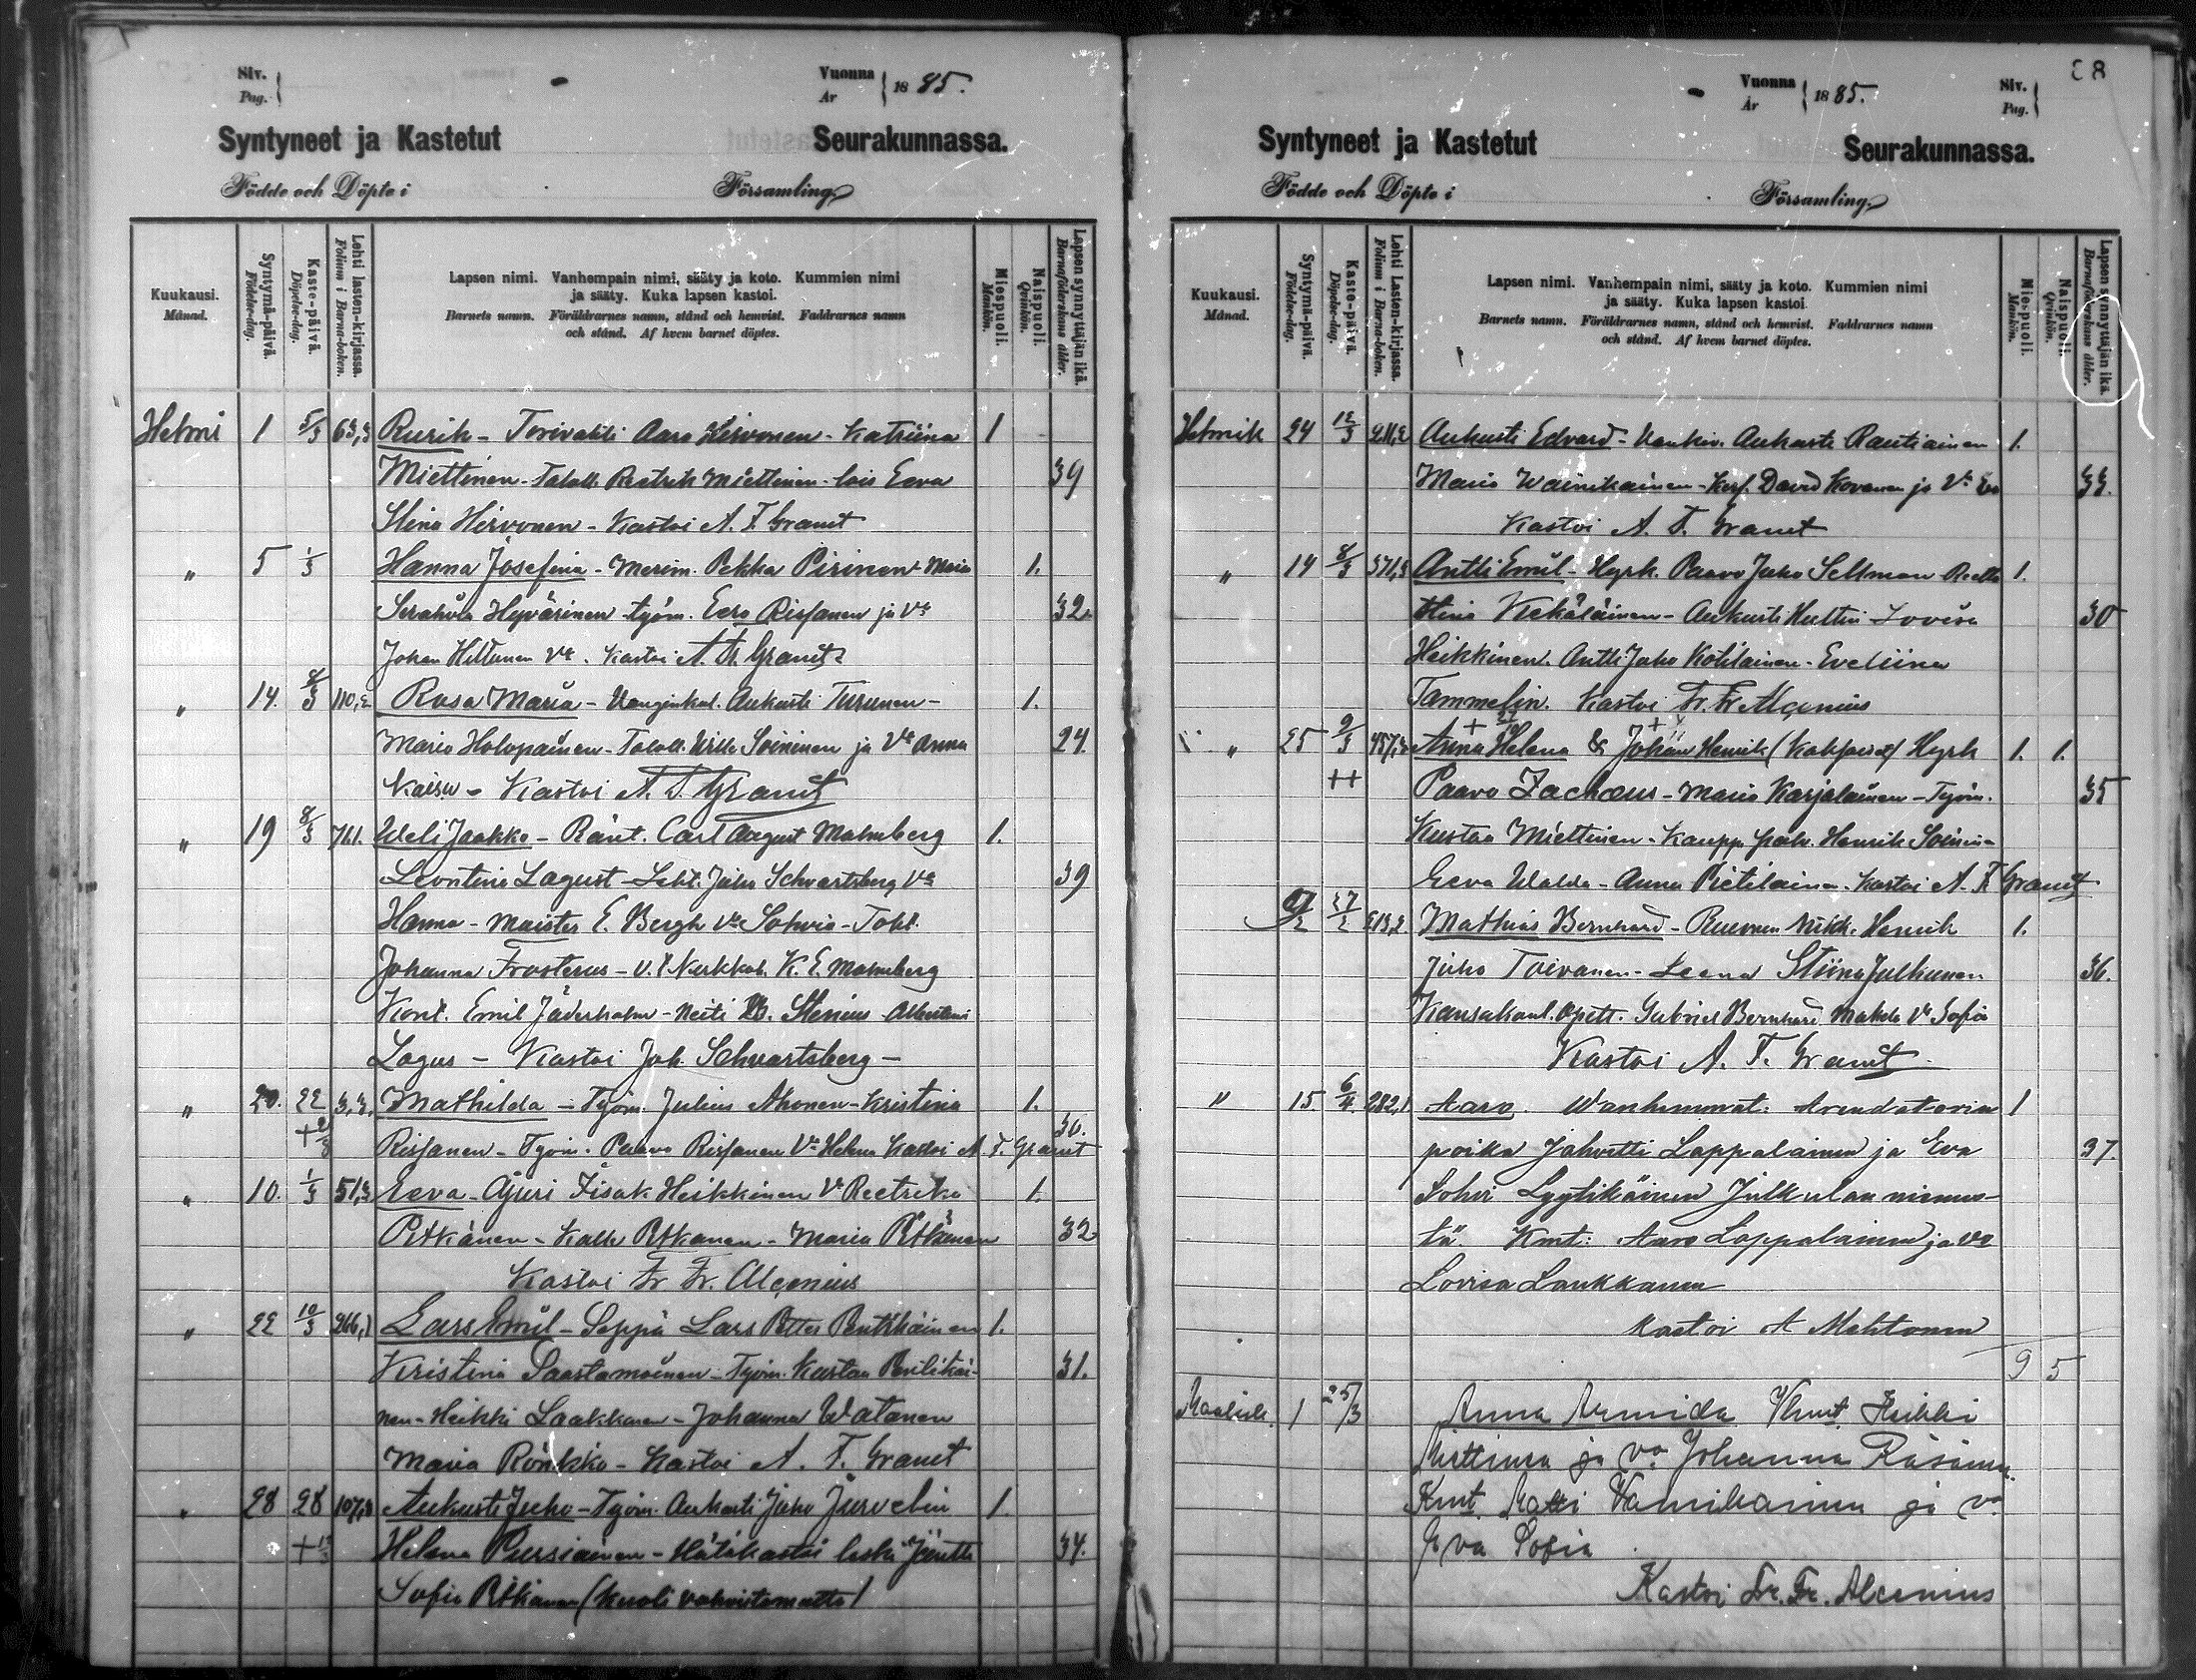 Siv.
Pag.
Vuonna
År
1885.
Syntyneet ja Kastetut Seurakunnassa.
Födde och Döpte i Församling.
Kuukausi.
Månad.
Syntymä-päivä.
Födelse-dag.
Kaste-päivä.
Döpelse-dag.
Lehti lasten-kirjassa.
Folium i Barna-boken.
Lapsen nimi. Vanhempain nimi, sääty ja koto. Kummien nimi
ja sääty. Kuka lapsen kastoi.
Barnets namn. Föräldrarnes namn, stånd och hemvist. Faddrarnes namn
och stånd. Af hvem barnet döptes.
Miespuoli.
Mankön.
Naispuoli.
Qvinkön.
Lapsen synnyttäjän ikä.
Barnaföderskans ålder.
Helmi 1 5/3 Rurik - Aaro Hirvonen - Katriina 1
Miettinen - Taloll. Miettinen - lois Eeva 39
Stina Hirvonen - Kastoi A. F. Granit
" 5 1/3 Hanna Josefina - Merim. Pekka Pirinen - Maria 1.
Hyvärinen - työm. Eero Rissanen ja Va 32
Johan Hiltunen Va. Kastoi A. F. Granit
" 14. 110,2 Rosa Maria - Aukusti Turunen - 1.
Maria Holopainen - Taloll. Wille Soininen ja Va Anna 24.
Kaisa - Kastoi A. F. Granit
" 19 8/3 Weli Jaakko - Ränt. Carl August Malmberg 1.
Leontina Lagust - Juho Schvartsberg Va 39
Hanna - Maister E. Bergh Va Sohvia - Toht.
Johanna Frosterus - K. E. Malmberg
Kont. Emil Jäderholm - Neiti Stenius
Lagus - Kastoi Joh. Schvartsberg -
" 20. 22 3,3. Mathilda - Työm. Julius Ahonen - Kristina 1.
Rissanen - Työm. Paavo Rissanen Va Helena Kastoi A. F. Granit 30.
" 10. 1/3 51,3 Eeva - Ajuri Isak Heikkinen Va Reetrika 1.
Pitkänen - Kalle Pitkänen - Maria Pitkänen 32
Kastoi Fr. Fr. Alcenius
" 22 10/3 266,1 Lars Emil - Seppä Lars Petter Pentikäinen 1.
Kristina Saastamoinen - Työm. Kustaa Pentikäi- 31.
nen - Heikki Laakkonen - Johanna Watanen
Maria Rönkkö - Kastoi A. F. Granit
" 28 28 Aukusti Juho - Työm. Aukusti Juho 1.
Helena Pursiainen - Hätäkastoi leski 34.
Sofia Pitkänen (Kuoli vahvistamatta)
88
Vuonna
År
1885.
Siv.
Pag.
Syntyneet ja Kastetut Seurakunnassa.
Födde och Döpte i Församling.
Kuukausi.
Månad.
Syntymä-päivä.
Födelse-dag.
Kaste-päivä.
Döpelse-dag.
Lehti Lasten-kirjassa.
Folium i Barna-boken.
Lapsen nimi. Vanhempain nimi, sääty ja koto. Kummien nimi
ja sääty. Kuka lapsen kastoi.
Barnets namn. Föräldrarnes namn, stånd och hemvist. Faddrarnes namn
och stånd. Af hvem barnet döptes.
Miespuoli.
Mankön.
Naispuoli.
Qvinkön.
Lapsen synnyttäjän ikä.
Barnaföderskans ålder.
Helmik 24 12/3 Aukusti Edvard - Aukusti Rautiainen 1.
Maria Wäinikainen - David Kovanen ja Va Eva 33.
Kastoi A. F. Granit
" 14 8/3 Antti Emil - Hyrk. Paavo Juho Sellman Reetta 1.
Stina Kekäläinen - Aukusti Lovisa 30
Heikkinen. Antti Juho Kotilainen - Eveliina
Tammelin. Kastoi Fr. Fr. Alcenius
" 25 9/3 Anna Helena & Johan Henrik (Kaksoiset) Hyrk 1. 1.
++ Paavo Zachæus - Maria Karjalainen - Työm. 35
Kustaa Miettinen - Kaupp. palv. Henrik Soinin-
Eeva - Anna Pietiläinen - Kastoi A. F. Granit
27/2 Mathias Bernhard - Henrik 1.
Juho Toivanen - Leena Stiina Julkunen 36.
Kansakoul. Opett. Gabriel Bernhard Va Sofia
Kastoi A. F. Granit
" 15. 6/4. 282,1 Aaro. Wanhemmat: Arendatorin 1
poika Jahvetti Lappalainen ja Eva 37.
Sohvi Lyytikäinen Julkulan niemes-
tä. Kmt: Aaro Lappalainen ja va
Lovisa Laukkanen
Kastoi A Mehtonen
9 5
Maalisk. 1 25/3 Anna Armida Heikki
Miettinen ja va Johanna Räsänen.
Kmt. Matti Wainikainen ja va
Eva Sofia
Kastoi Fr. Fr. Alcenius